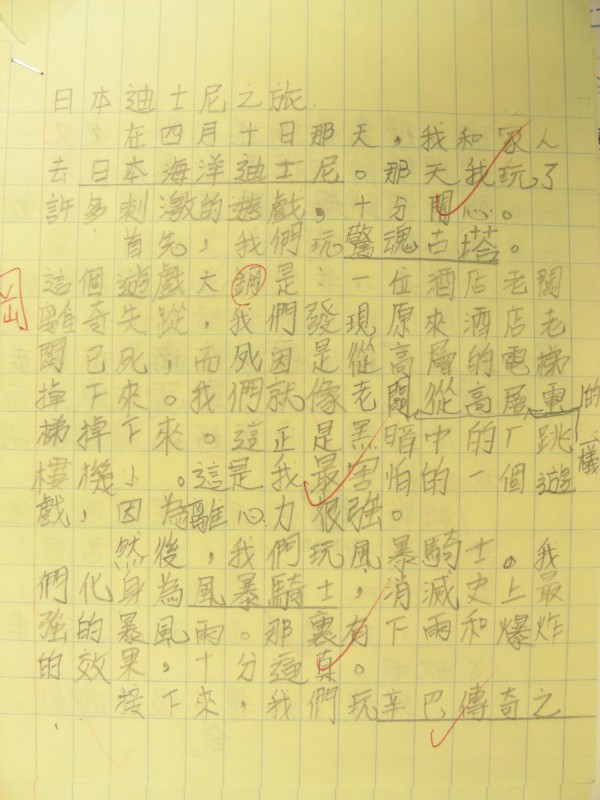 日本迪士尼之旅
在四月十日那天，我和家人
去日本海洋迪士尼。那天我玩了
許多刺激的遊戲，十分開心。
首先，我們玩驚魂古塔。
這個遊戲大鋼是：一位酒店老闆
岡
離奇失蹤，我們發現原來酒店老
闆已死，而死因是從高層的電梯
掉下來。我們就像老闆從高層電
的
梯掉下來。這正是黑暗中的「跳
一樣
樓機」。這是我最害怕的一個遊
戲，因為離心力很強。
然後，我們玩風暴騎士。我
們化身為風暴騎士，消滅史上最
強的暴風雨。那裏有下雨和爆炸
的效果，十分逼真。
接下來，我們玩辛巴傳奇之